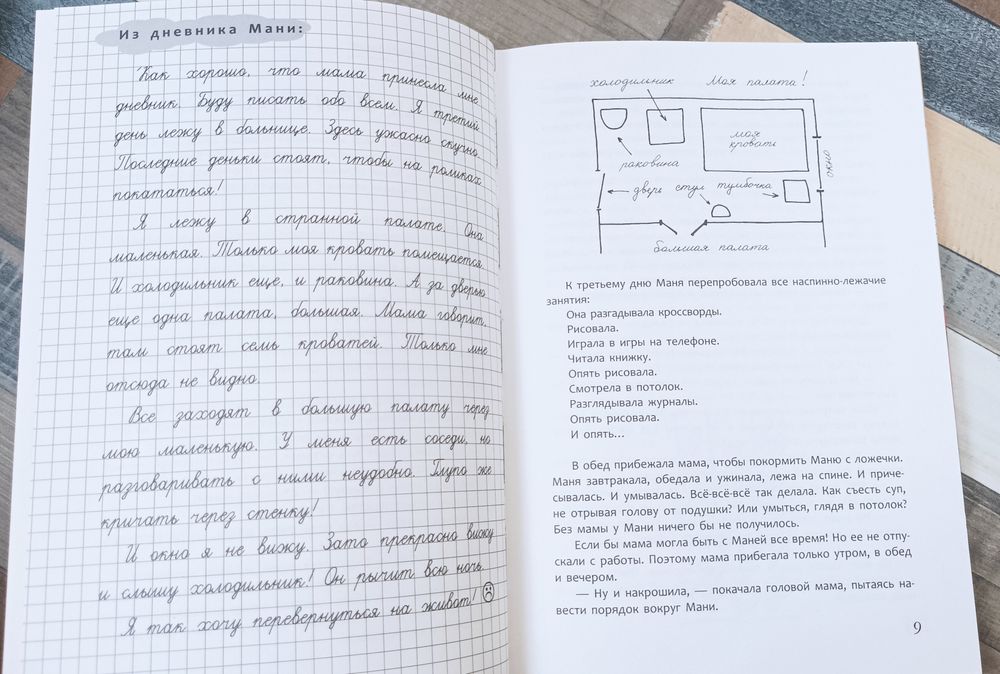 Из дневника Мани:
Как хорошо, что мама принесла мне
дневник. Буду писать обо всем. Я третий
день лежу в больнице. Здесь ужасно скучно.
Последние деньки стоят, чтобы на роликах
покататься!
Я лежу в странной палате. Она
маленькая. Только моя кровать помещается.
И холодильник еще, и раковина. А за дверью
еще одна палата, большая. Мама говорит,
там стоят семь кроватей. Только мне
отсюда не видно.
Все заходят в большую палату через
мою маленькую. У меня есть соседи, но
разговаривать с ними неудобно. Глупо же
кричать через стенку!
И окно я не вижу. Зато прекрасно вижу
и слышу холодильник! Он рычит всю ночь.
Я так хочу перевернуться на живот!
холодильник Моя палата!
моя
кровать
раковина
окно
дверь стул тумбочка
большая палата
К третьему дню Маня перепробовала все наспинно-лежачие
занятия:
Она разгадывала кроссворды.
Рисовала.
Играла в игры на телефоне.
Читала книжку.
Опять рисовала.
Смотрела в потолок.
Разглядывала журналы.
Опять рисовала.
И опять...
В обед прибежала мама, чтобы покормить Маню с ложечки.
Маня завтракала, обедала и ужинала, лежа на спине. И приче-
сывалась. И умывалась. Всё-всё-всё так делала. Как съесть суп,
не отрывая голову от подушки? Или умыться, глядя в потолок?
Без мамы у Мани ничего бы не получилось.
Если бы мама могла быть с Маней все время! Но ее не отпу-
скали с работы. Поэтому мама прибегала только утром, в обед
и вечером.
— Ну и накрошила, — покачала головой мама, пытаясь на-
вести порядок вокруг Мани.
9